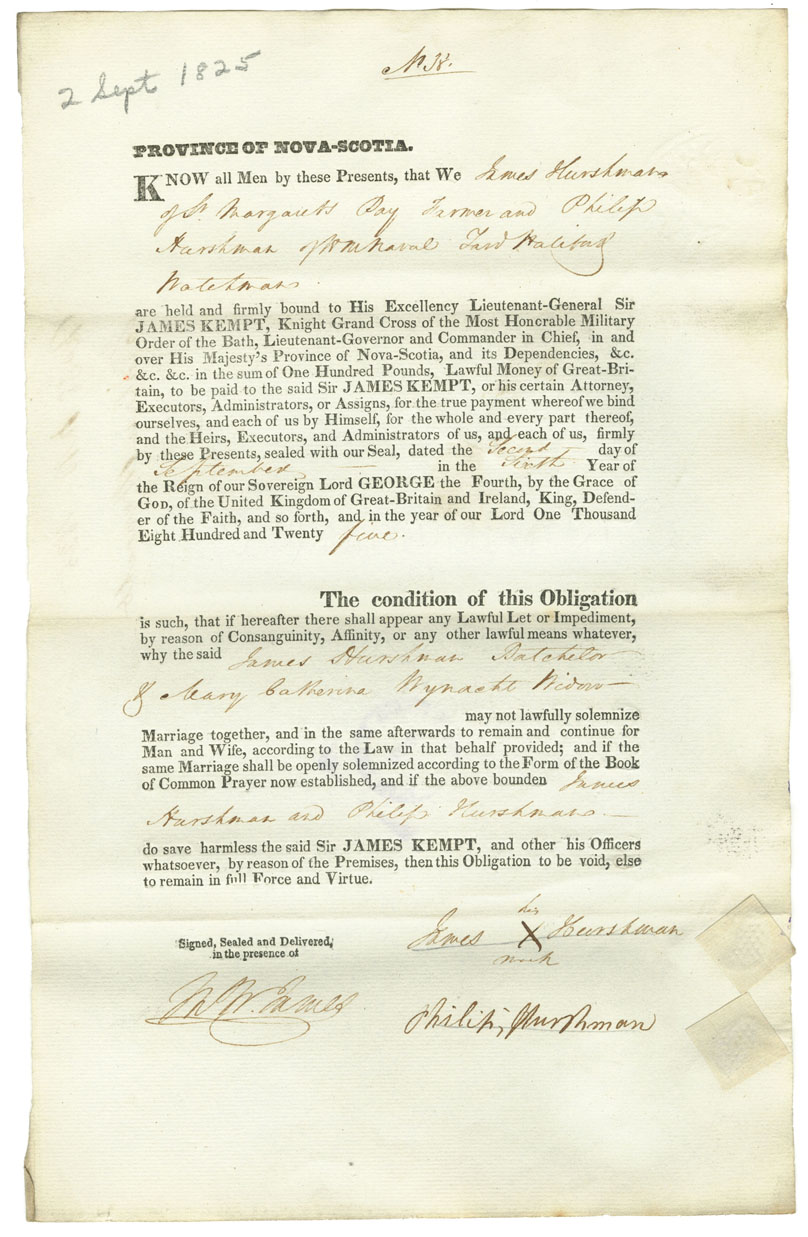 2 Sept 1825
PROVINCE OF NOVA-SCOTIA.
KNOW all Men by these Presents, that We James Hurshman
of St. Margarets Bay Farmer and Philip
Hurshman of HM Naval Yard Halifax
Watchman
are held and firmly bound to His Excellency Lieutenant-General Sir
JAMES KEMPT, Knight Grand Cross of the Most Honorable Military
Order of the Bath, Lieutenant-Governor and Commander in Chief, in and
over His Majesty's Province of Nova-Scotia, and its Dependencies, &c.
&c. &c. in the sum of One Hundred Pounds, Lawful Money of Great-Bri-
tain, to be paid to the said Sir JAMES KEMPT, or his certain Attorney,
Executors, Administrators, or Assigns, for the true payment whereof we bind
ourselves, and each of us by Himself, for the whole and every part thereof,
and the Heirs, Executors, and Administrators of us, and each of us, firmly
by these Presents, sealed with our Seal, dated the Second day of
September in the Sixth Year of
the Reign of our Sovereign Lord GEORGE the Fourth, by the Grace of
GOD, of the United Kingdom of Great-Britain and Ireland, King, Defend-
er of the Faith, and so forth, and in the year of our Lord One Thousand
Eight Hundred and Twenty five.
The condition of this Obligation
is such, that if hereafter there shall appear any Lawful Let or Impediment,
by reason of Consanguinity, Affinity, or any other lawful means whatever,
why the said James Hurshman Batchelor
& Mary Catherina Wynacht Widow
may not lawfully solemnize
Marriage together, and in the same afterwards to remain and continue for
Man and Wife, according to the Law in that behalf provided; and if the
same Marriage shall be openly solemnized according to the Form of the Book
of Common Prayer now established, and if the above bounden James
Hurshman and Philip Hurshman
do save harmless the said Sir JAMES KEMPT, and other his Officers
whatsoever, by reason of the Premises, then this Obligation to be void, else
to remain in full Force and Virtue.
his
James X Hurshman
mark
Signed, Sealed and Delivered,
in the presence of
James
Philip Hurshman